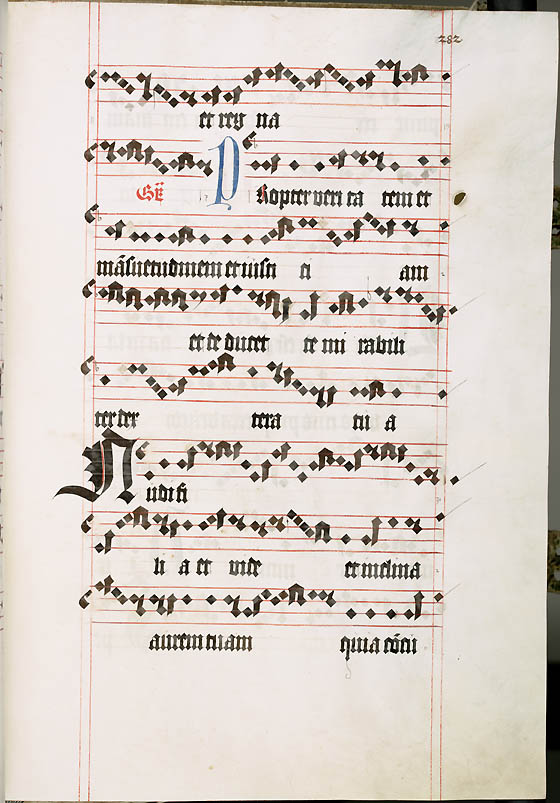 282
et reg na
Gr̄ P Ropter veri ta tem et
mãsuetudinem et iusti ci am
et de ducet te mi rabili
ter dex tera tu a
A udi fi
li a et vide et inclina
aurem tuam quia cõcu